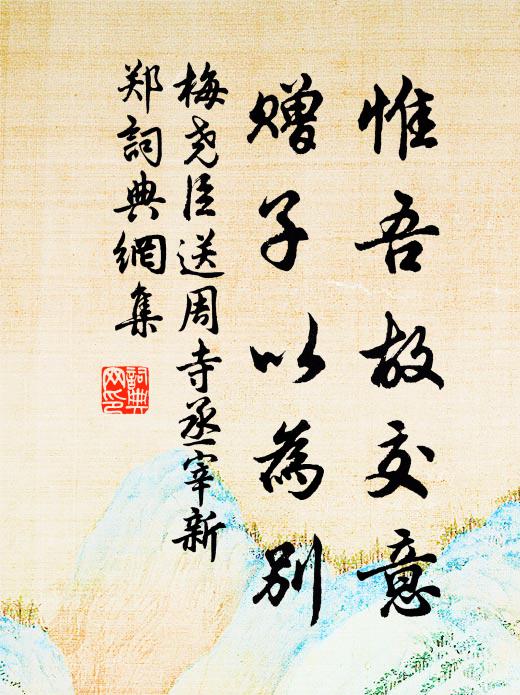 惟吾故交意
赠子以為别
梅尧臣送周寺丞宰新
郑詞典網集
詞典
网印